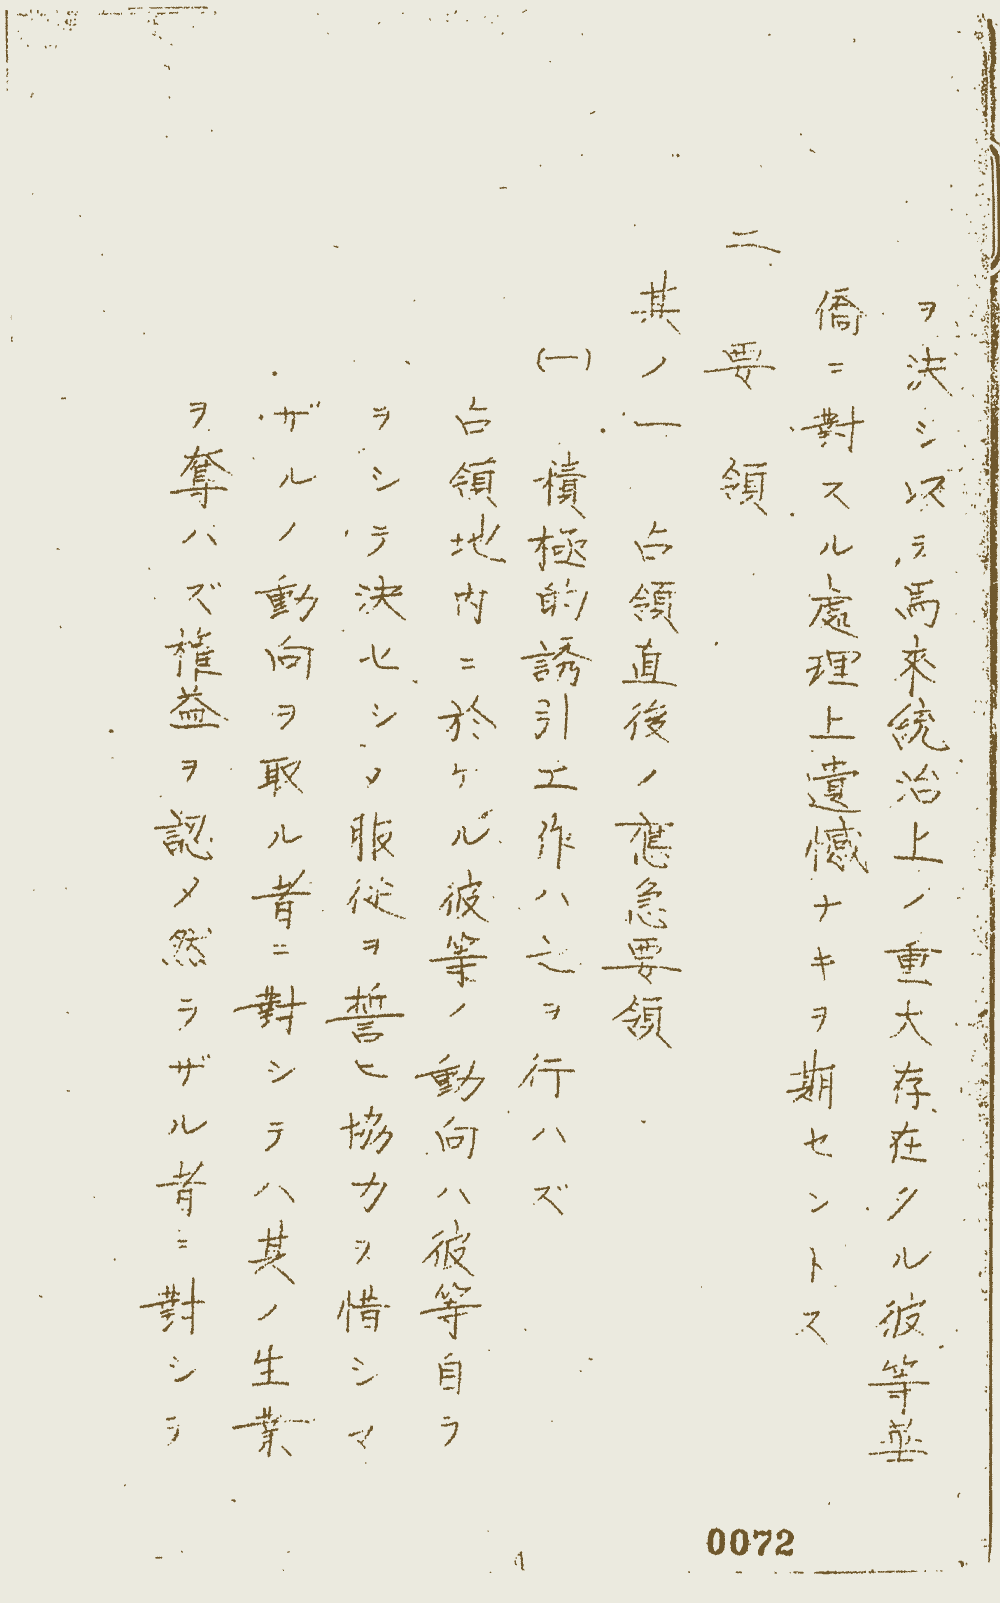 ヲ決シ以テ馬來統治上ノ重大存在タル彼等華
僑ニ對スル處理上遺憾ナキヲ期セントス
二 要領
其ノ一 占領直後ノ應急要領
(一) 積極的誘引工作ハ之ヲ行ハズ
占領地内ニ於ケル彼等ノ動向ハ彼等自ラ
ヲシテ決セシメ服従ヲ誓ヒ協力ヲ惜シマ
ザルノ動向ヲ取ル者ニ對シテハ其ノ生業
ヲ奪ハズ権益ヲ認メ然ラザル者ニ對シテ
0072